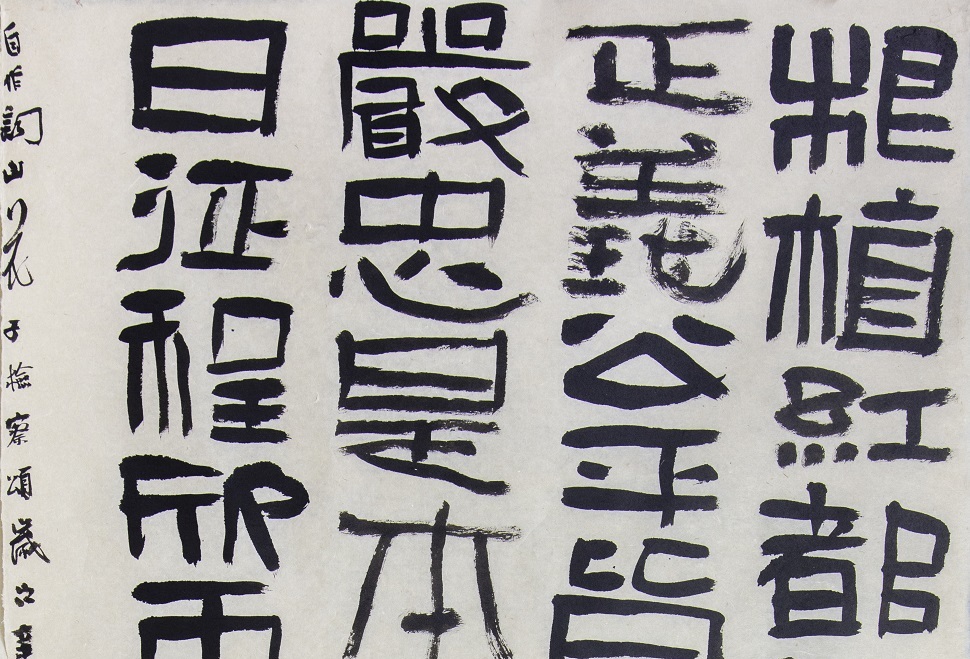 根植紅都
正義公平
嚴忠是本
日征程欣
自作詞山花子檢察頌歲次